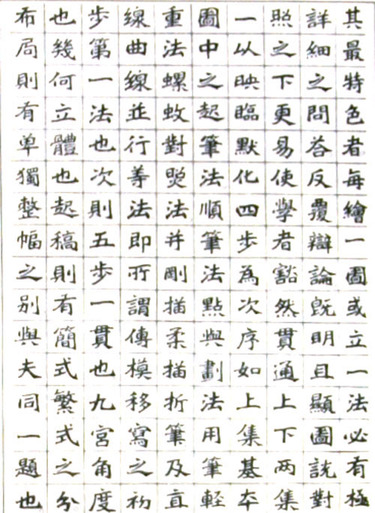 其最特色者每繪一圖或立一法必有極
詳細之問答反覆辯論旣明且顯圖說對
照之下更易使學者豁然貫通上下兩集
一以映臨默化四步為次序如上集基本
圖中之起筆法順筆法點與劃法用筆輕
重法螺蚊對熨法并剛描柔描折筆及直
線曲線並行等法即所謂傳模移寫之初
步第一法也次則五步一貫也九宮角度
也幾何立體也起稿則有簡式繁式之分
布局則有单獨整幅之别與夫同一題也